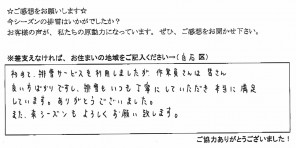 ☆ご感想をお願いします☆
今シーズンの排雪はいかがでしたか？
お客様の声が、私たちの原動力になっています。ぜひ、ご感想をお聞かせ下さい。
※差支えなければ、お住まいの地域をご記入ください―(白石区)
初めて、排雪サービスを利用しましたが、作業員さんは皆さん
良い方ばかりですし、排雪もいつも丁寧にしていただき本当に満足
しています。ありがとうございました。
また、来シーズンもよろしくお願い致します。
ご協力ありがとうございました！